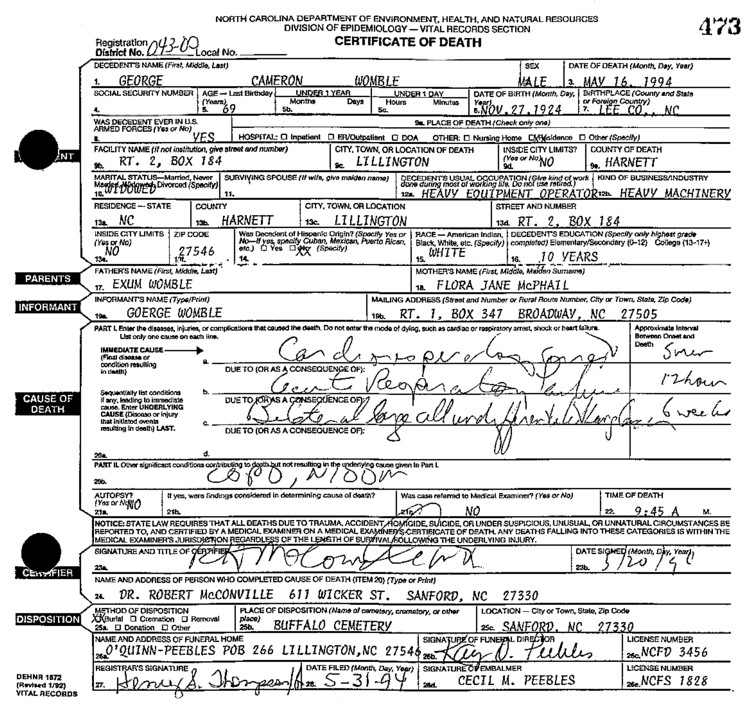 NORTH CAROLINA DEPARTMENT OF ENVIRONMENT, HEALTH, AND NATURAL RESOURCES
DIVISION OF EPIDEMIOLOGY — VITAL RECORDS SECTION
473
Registration District No. 043-00 Local No.
CERTIFICATE OF DEATH
DECEDENT'S NAME (First, Middle, Last) SEX DATE OF DEATH (Month, Day, Year)
1. GEORGE CAMERON WOMBLE MALE 3. MAY 16, 1994
SOCIAL SECURITY NUMBER AGE — Last Birthday (Years) UNDER 1 YEAR Months Days UNDER 1 DAY Hours Minutes DATE OF BIRTH (Month, Day, Year) BIRTHPLACE (County and State or Foreign Country)
4. 5. 69 5b. 5c. 6. NOV. 27, 1924 7. LEE CO., NC
WAS DECEDENT EVER IN U.S. ARMED FORCES (Yes or No) 9a. PLACE OF DEATH (Check only one)
8. YES HOSPITAL: ☐ Inpatient ☐ ER/Outpatient ☐ DOA OTHER: ☐ Nursing Home XX Residence ☐ Other (Specify)
FACILITY NAME (If not institution, give street and number) CITY, TOWN, OR LOCATION OF DEATH INSIDE CITY LIMITS? (Yes or No) COUNTY OF DEATH
9b. RT. 2, BOX 184 9c. LILLINGTON 9d. NO 9e. HARNETT
MARITAL STATUS—Married, Never Married, Widowed, Divorced (Specify) SURVIVING SPOUSE (If wife, give maiden name) DECEDENT'S USUAL OCCUPATION (Give kind of work done during most of working life. Do not use retired.) KIND OF BUSINESS/INDUSTRY
10. WIDOWED 11. 12a. HEAVY EQUIPMENT OPERATOR 12b. HEAVY MACHINERY
RESIDENCE — STATE COUNTY CITY, TOWN, OR LOCATION STREET AND NUMBER
13a. NC 13b. HARNETT 13c. LILLINGTON 13d. RT. 2, BOX 184
INSIDE CITY LIMITS (Yes or No) ZIP CODE Was Decedent of Hispanic Origin? (Specify Yes or No—If yes, specify Cuban, Mexican, Puerto Rican, etc.) ☐ Yes XX (Specify) RACE — American Indian, Black, White, etc. (Specify) DECEDENT'S EDUCATION (Specify only highest grade completed) Elementary/Secondary (0-12) College (13-17+)
13e. NO 13f. 27546 14. 15. WHITE 16. 10 YEARS
PARENTS
FATHER'S NAME (First, Middle, Last) MOTHER'S NAME (First, Middle, Maiden Surname)
17. EXUM WOMBLE 18. FLORA JANE McPHAIL
INFORMANT
INFORMANT'S NAME (Type/Print) MAILING ADDRESS (Street and Number or Rural Route Number, City or Town, State, Zip Code)
19a. GOERGE WOMBLE 19b. RT. 1, BOX 347 BROADWAY, NC 27505
PART I. Enter the diseases, injuries, or complications that caused the death. Do not enter the mode of dying, such as cardiac or respiratory arrest, shock or heart failure.
List only one cause on each line.
Approximate Interval Between Onset and Death
IMMEDIATE CAUSE (Final disease or condition resulting in death) a. Cardiorespiratory arrest 5 min
DUE TO (OR AS A CONSEQUENCE OF):
b. Acute Respiratory Failure 12 hour
CAUSE OF DEATH
Sequentially list conditions if any, leading to immediate cause. Enter UNDERLYING CAUSE (Disease or injury that initiated events resulting in death) LAST.
DUE TO (OR AS A CONSEQUENCE OF):
c. Bilateral large cell undifferentiated lung 6 weeks
DUE TO (OR AS A CONSEQUENCE OF):
20a. d.
PART II. Other significant conditions contributing to death but not resulting in the underlying cause given in Part I.
20b. COPD, NIDDM
AUTOPSY? (Yes or No) If yes, were findings considered in determining cause of death? Was case referred to Medical Examiner? (Yes or No) TIME OF DEATH
21a. NO 21b. 21c. NO 22. 9:45 A M.
NOTICE: STATE LAW REQUIRES THAT ALL DEATHS DUE TO TRAUMA, ACCIDENT, HOMICIDE, SUICIDE, OR UNDER SUSPICIOUS, UNUSUAL, OR UNNATURAL CIRCUMSTANCES BE
REPORTED TO, AND CERTIFIED BY A MEDICAL EXAMINER ON A MEDICAL EXAMINER'S CERTIFICATE OF DEATH. ANY DEATHS FALLING INTO THESE CATEGORIES IS WITHIN THE
MEDICAL EXAMINER'S JURISDICTION REGARDLESS OF THE LENGTH OF SURVIVAL FOLLOWING THE UNDERLYING INJURY.
SIGNATURE AND TITLE OF CERTIFIER DATE SIGNED (Month, Day, Year)
23a. 23b. 5/20/94
CERTIFIER
NAME AND ADDRESS OF PERSON WHO COMPLETED CAUSE OF DEATH (ITEM 20) (Type or Print)
24. DR. ROBERT McCONVILLE 611 WICKER ST. SANFORD, NC 27330
DISPOSITION
METHOD OF DISPOSITION PLACE OF DISPOSITION (Name of cemetery, crematory, or other place) LOCATION — City or Town, State, Zip Code
XX Burial ☐ Cremation ☐ Removal
25a. ☐ Donation ☐ Other 25b. BUFFALO CEMETERY 25c. SANFORD, NC 27330
NAME AND ADDRESS OF FUNERAL HOME SIGNATURE OF FUNERAL DIRECTOR LICENSE NUMBER
26a. O'QUINN-PEEBLES POB 266 LILLINGTON, NC 27546 26b. Kay D. Peebles 26c. NCFD 3456
REGISTRAR'S SIGNATURE DATE FILED (Month, Day, Year) SIGNATURE OF EMBALMER LICENSE NUMBER
27. Henry S. Thompson 28. 5-31-94 26d. CECIL M. PEEBLES 26e. NCFS 1828
DEHNR 1872
(Revised 1/92)
VITAL RECORDS